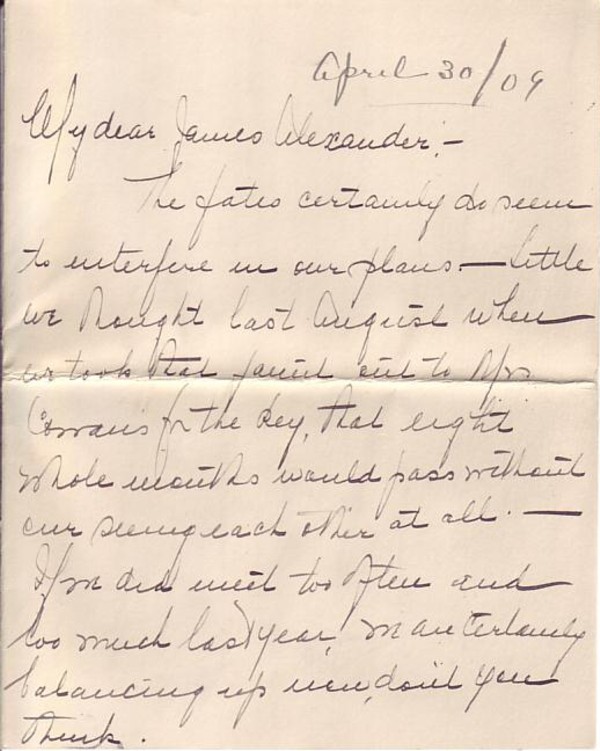 April 30/09
My dear James Alexander,-
The fates certainly do seem
to interfere in our plans - little
we thought last August when
we took that jaunt out to Mrs
Cowan's for the key, that eight
whole months would pass without
our seeing each other at all. -
If we did meet too often and
too much last year, we are certainly
balancing up now, don't you
think.